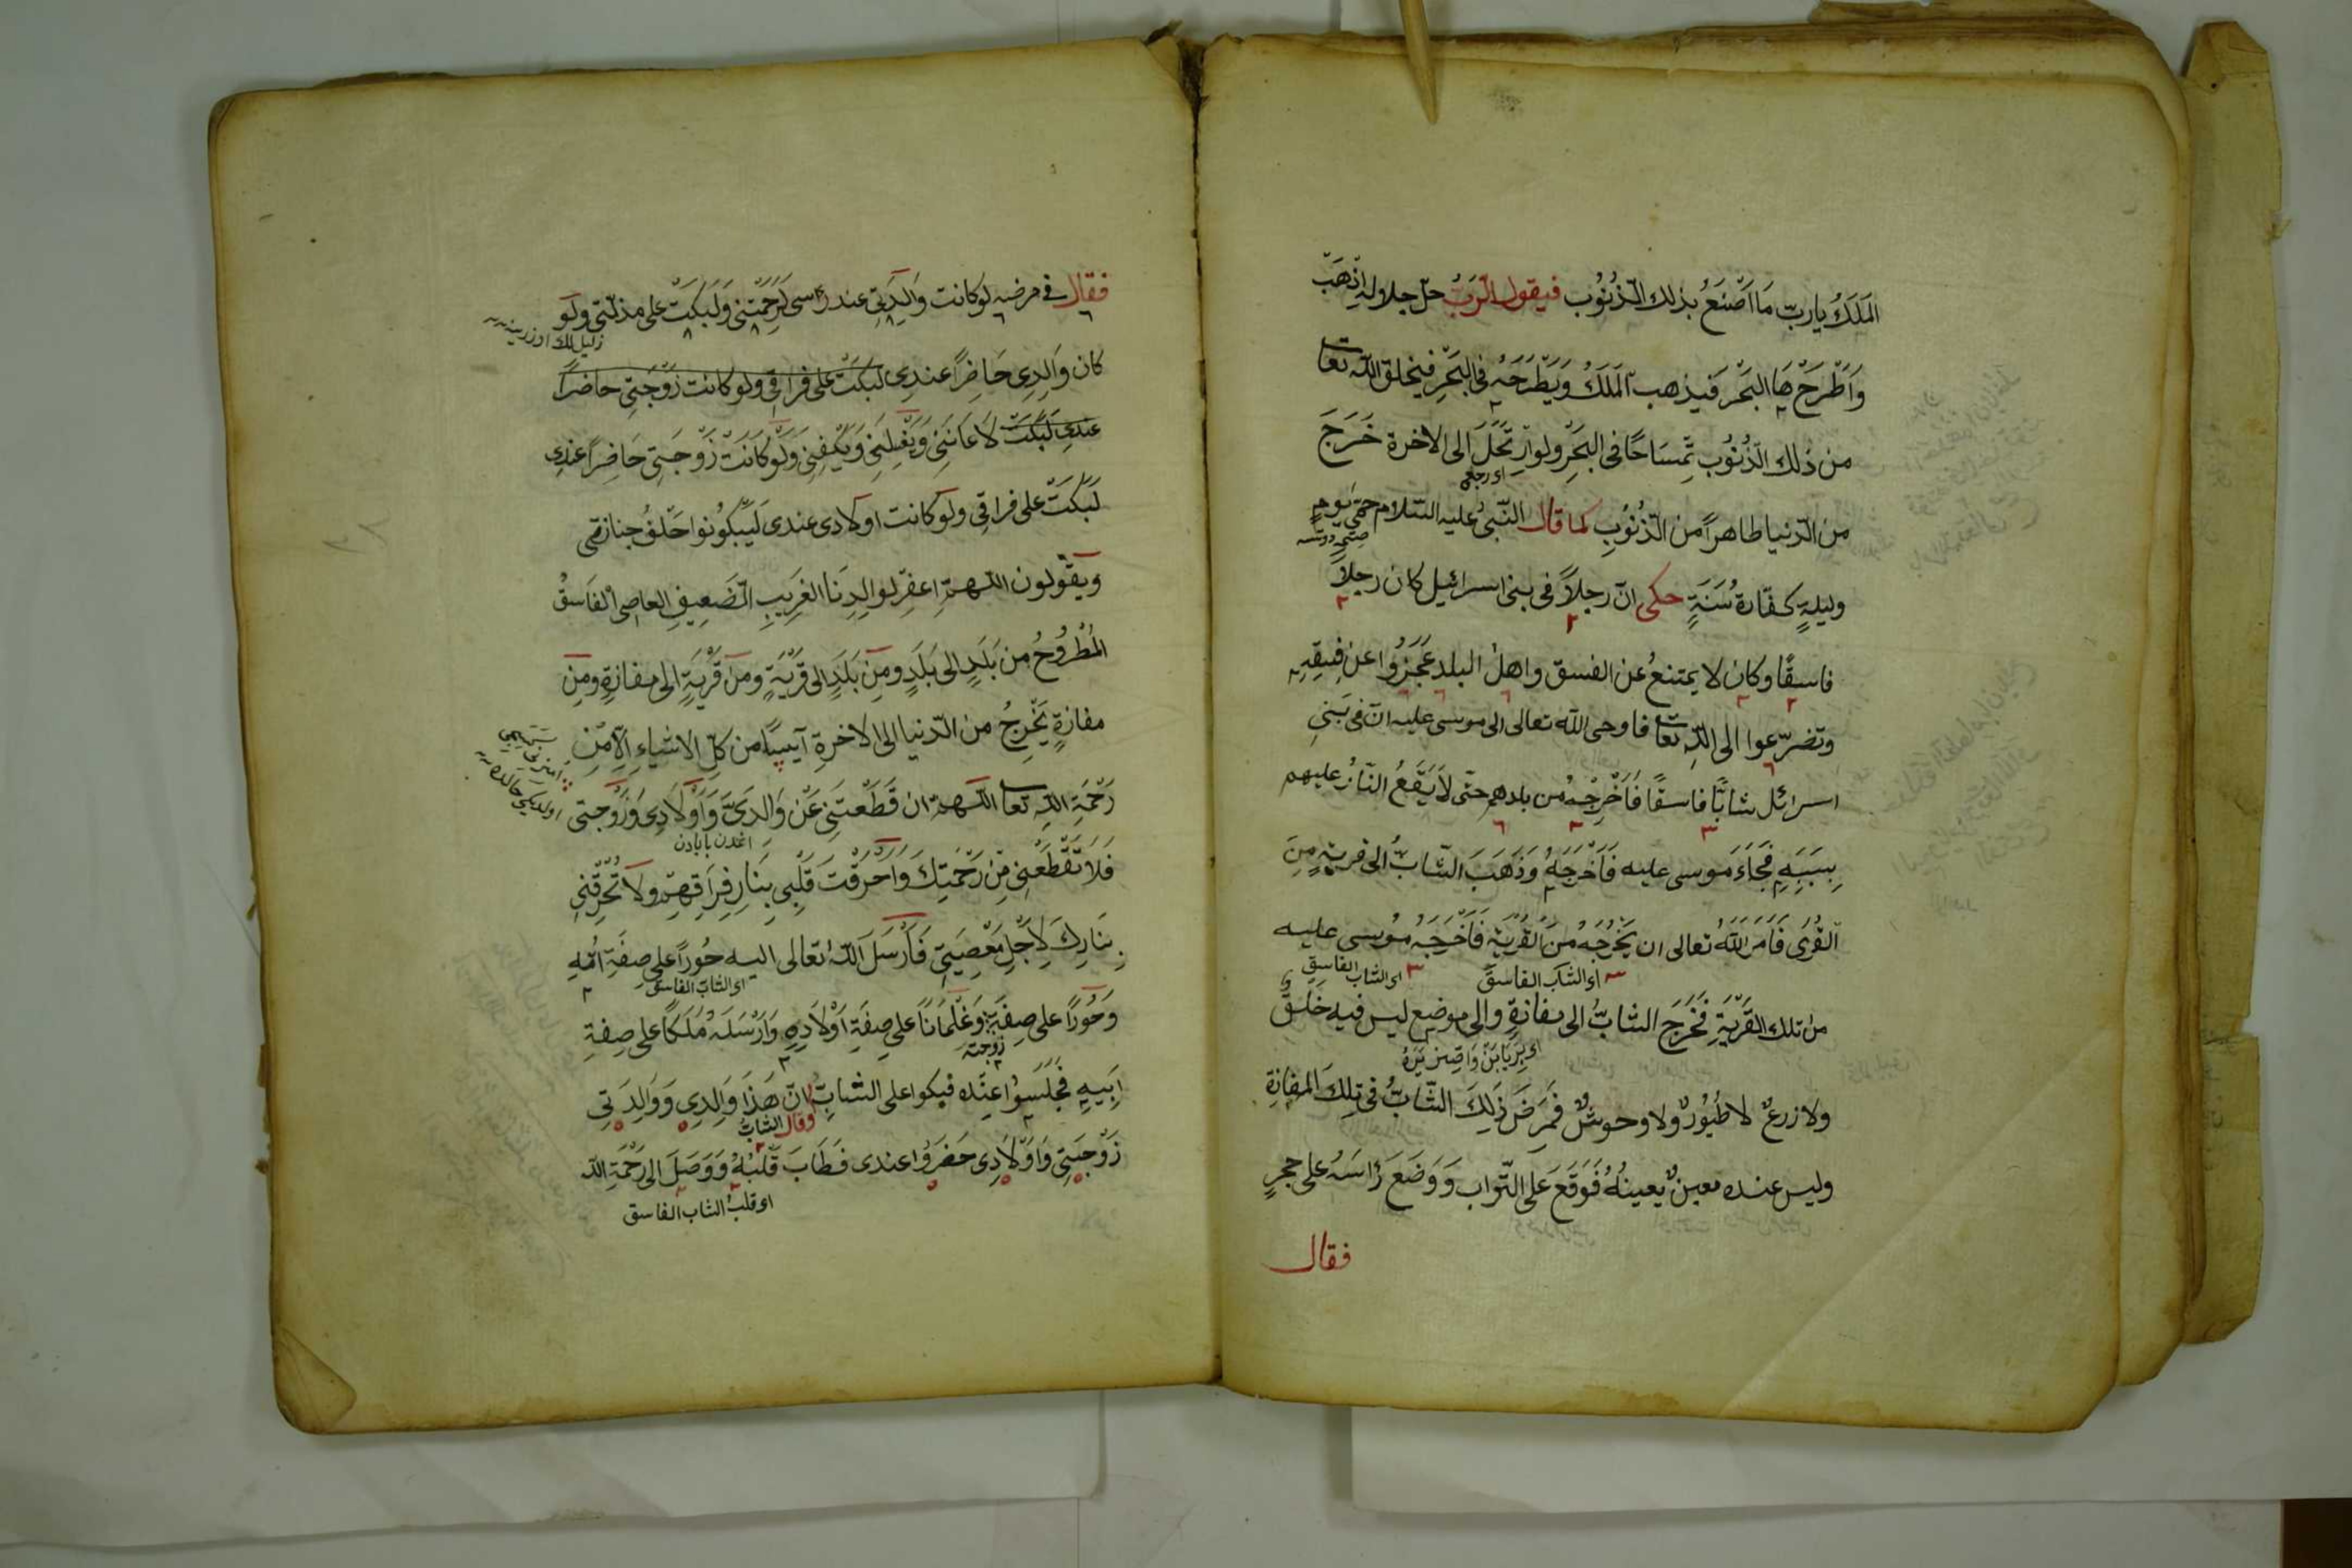 المَلَكُ يارب مَا اَصْنَعُ بذلك الذُّنُوب فيقول الرَبُّ جلّ جلاوله اِذْهَبْ
وَاَطْرَحْ هَا البَحْر فَيذهب المَلَكُ وَيَطْرَحُهُ في البَحْرِ فيخلق الله تعا
من ذلك الذُنُوب تِمْسَاحًا فى البَحْرِ ولو اِرْتَحَلَ الى الاخرة خَرَجَ
اى رجع
من الدّنيا طاهراً من الذُّنُوبِ كما قال النَّبىُّ عليه السّلام حمّى يومٍ
وليلةٍ كفّارة سَنَةٍ حكى انّ رجلاً فى بنى اسرائيل كان رجلاً
فاسقًا وكان لا يمتنعُ عن الفسق واهل البلد عَجَزُوا عن فِسقِهِ
وتضرّعوا الى اللّه تعا فاوحى اللّه تعالى الى موسى عليه انّ فى بَنىِ
اسرائل شابًّا فاسقًا فَاَخْرِجْهُ من بلدهم حتّى لاَيَقَعُ النّارُ عليهم
بِسَبَبِهِ فَجَاءَ موسى عليه فَاَخْرَجَهُ وَذَهَبَ الشّابُّ الى قريةٍ مِنَ
القُرَى فَاَمَرَ اللّهُ تعالى ان يَخْرُجَهُ منَ القُرْيَة فَاَخْرَجَهُ مُوسى عليه
اى الشابَ الفاسقَ اى الشابَ الفاسِقِ
من تلك القَرْيَةِ فَخَرَجَ الشابُّ الى مفازةٍ والى موضع ليس فيه خَلْقٌ
ولا زرعٌ لا طُيُورٌ ولا وحوشٌ فَمَرَضَ ذَلِكَ الشّابُّ فى تِلْكَ المفازةِ
وليس عنده معينٌ يعينُهُ فَوَقَعَ عَلَى التّواب وَوَضَعَ رَاسَهُ على حجرٍ
فقال
فقال فى مرضهِ لو كانت وَالِدَتِى عند رأسى لَرَحِمَتْنى وَلَبَكَتْ على مذلّتى ولَو
كان وَالِدِى حَاضِرًا عندِى لبكتْ على فراقى ولو كانت زَوْجَتِى حاضرًا
عندى لَبَكَتْ لاَعَانَنِى وَيَغْسِلَنِى وَيَكْفِنِى وَلَوْ كَانَتْ زَوْجَتِى حَاضِرًا عندِى
لَبَكَتْ على فراقِى ولَو كانت اولادى عندى لَيَبْكُونوا خَلْفُ جنازتى
ويَقُولون اللّهمّ اغفِرْ لوالِدِنَا الغَرِيبِ الضَعِيفِ العاصِ الفَاسقُ
المُطْرُوحُ من بَلَدٍ الى بَلَدٍ ومِنْ بَلَدٍ الى قَرْيَةٍ ومن قَرْيَةٍ الى مفازةٍ ومِنْ
مفازةٍ يَخْرِجُ من الدّنيا الى الاخرةِ آيسًا من كلّ الاشياءِ اِلاّ مِنْ
رَحْمَةِ اللّهِ تعا اللّهمّ ان قَطَعْتَنِى عَنْ وَالدَىَّ وَاَوْلاَدِى وَزَوْجتى
فَلاَ تَقْطَعْنِى مِنْ رَحْمَتِكَ وَاَحْرَقْتَ قَلْبِى بِنَارِ فِرَاقِهِمْ ولا تُحْرِقْنِى
بِنَارِكَ لِاَجْلِ مَعْصِيَتِى فَاَرْسَلَ اللّهُ تعالى اليه حُوراً على صِفَةِ اُمِّهِ
اى الشابّ الفاسق
وَحُوراً على صِفَةِ وَغِلْمَانًا على صِفَةِ اَوْلاَدِهِ وَاَرْسَلَهُ مَلَكًا على صِفةِ
زوجته
اَبِيهِ فَجَلَسُوا عِنْدَه فبكوا على الشابّ انّ هَذَا وَالِدِى وَوَالِدَتِى
وقال الشابُّ
زَوْجَتِى وَاَوْلاَدِى حَضَرُوا عندى فَطَابَ قَلْبُهُ وَوَصَلَ الى رَحْمَةِ اللّه
اى قلبُ الشاب الفاسق